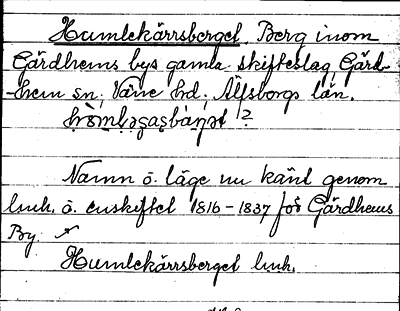 Humlekärrsberget, Berg inom
Gärdhems bys gamla skifteslag, Gärd-
-hem sn, Väne hd, Älfsborgs län.
Namn o. läge nu känt genom
lmk. o. enskiftet 1816-1837 för Gärdhems
By.
Humlekärrsberget lmk.